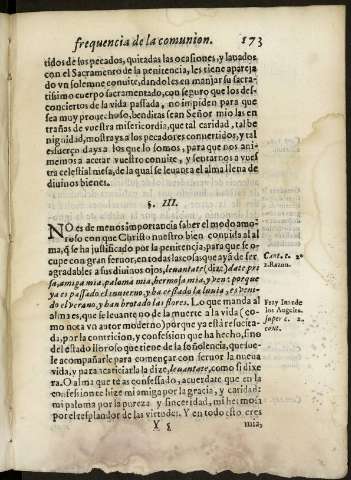 frequencia de la comunion. 173
tidos de sus pecados, quitadas las ocasiones, y lauados
con el Sacramento de la penitencia, les tiene apareja
do vn solemne conuite, dandoles en manjar su sacra-
tissimo cuerpo sacramentado, con seguro que los des-
conciertos de la vida passada, no impiden para que
sea muy prouechoso, benditas sean Señor mio las en
trañas de vuestra misericordia, que tal caridad, tal be
nignidad, mostrays a los pecadores conuertidos, y tal
esfuerço days a los que lo somos, para que nos ani-
memos a acetar vuestro conuite, y sentarnos a vues
tra celestial mesa, de la qual se leuanta el alma llena de
diuinos bienes.
§. III.
NO es de menos importancia saber el modo amo-
roso con que Christo nuestro bien conuida al al
ma, q̃ se ha justificado por la penitencia, para que se o-
cupe con gran feruor, en todas las cosas que aya de ser
agradables a sus diuinos ojos, leuantate (dize) date pries
sa, amiga mia, paloma mia, hermosa mia, y ven: porque
ya es passado el inuierno, y ha cessado la lluuia, es veni-
do el verano, y han brotado las flores. Lo que manda al
alma es, que se leuante no de la muerte a la vida (co-
mo nota vn autor moderno) porque ya està resucita-
da, por la contricion, y confession que ha hecho, sino
del estado lloroso que tiene de la soñolencia, que sue-
le acompañarle para començar con feruor la nueua
vida, y para acariciarla le dize, leuantate, como si dixe
ra. O alma que te as confessado, acuerdate que en la
confession te hize mi amiga por la gracia, y caridad:
mi paloma por la pureza y sinceridad, mi hermosa
por el resplandor de las virtudes. Y en todo esto eres
Y 5 mia,
Cant. c. 2.
Fray Iuan de
los Angeles.
super c. 2.
cant.